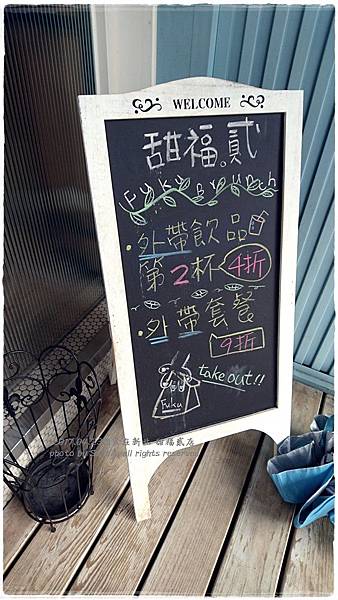 WELCOME
甜福。貳
Fuku Brunch
·外帶飲品
第2杯 4折
·外帶套餐
9折
take out!!
Fuku
甜福貳店
all rights reserved